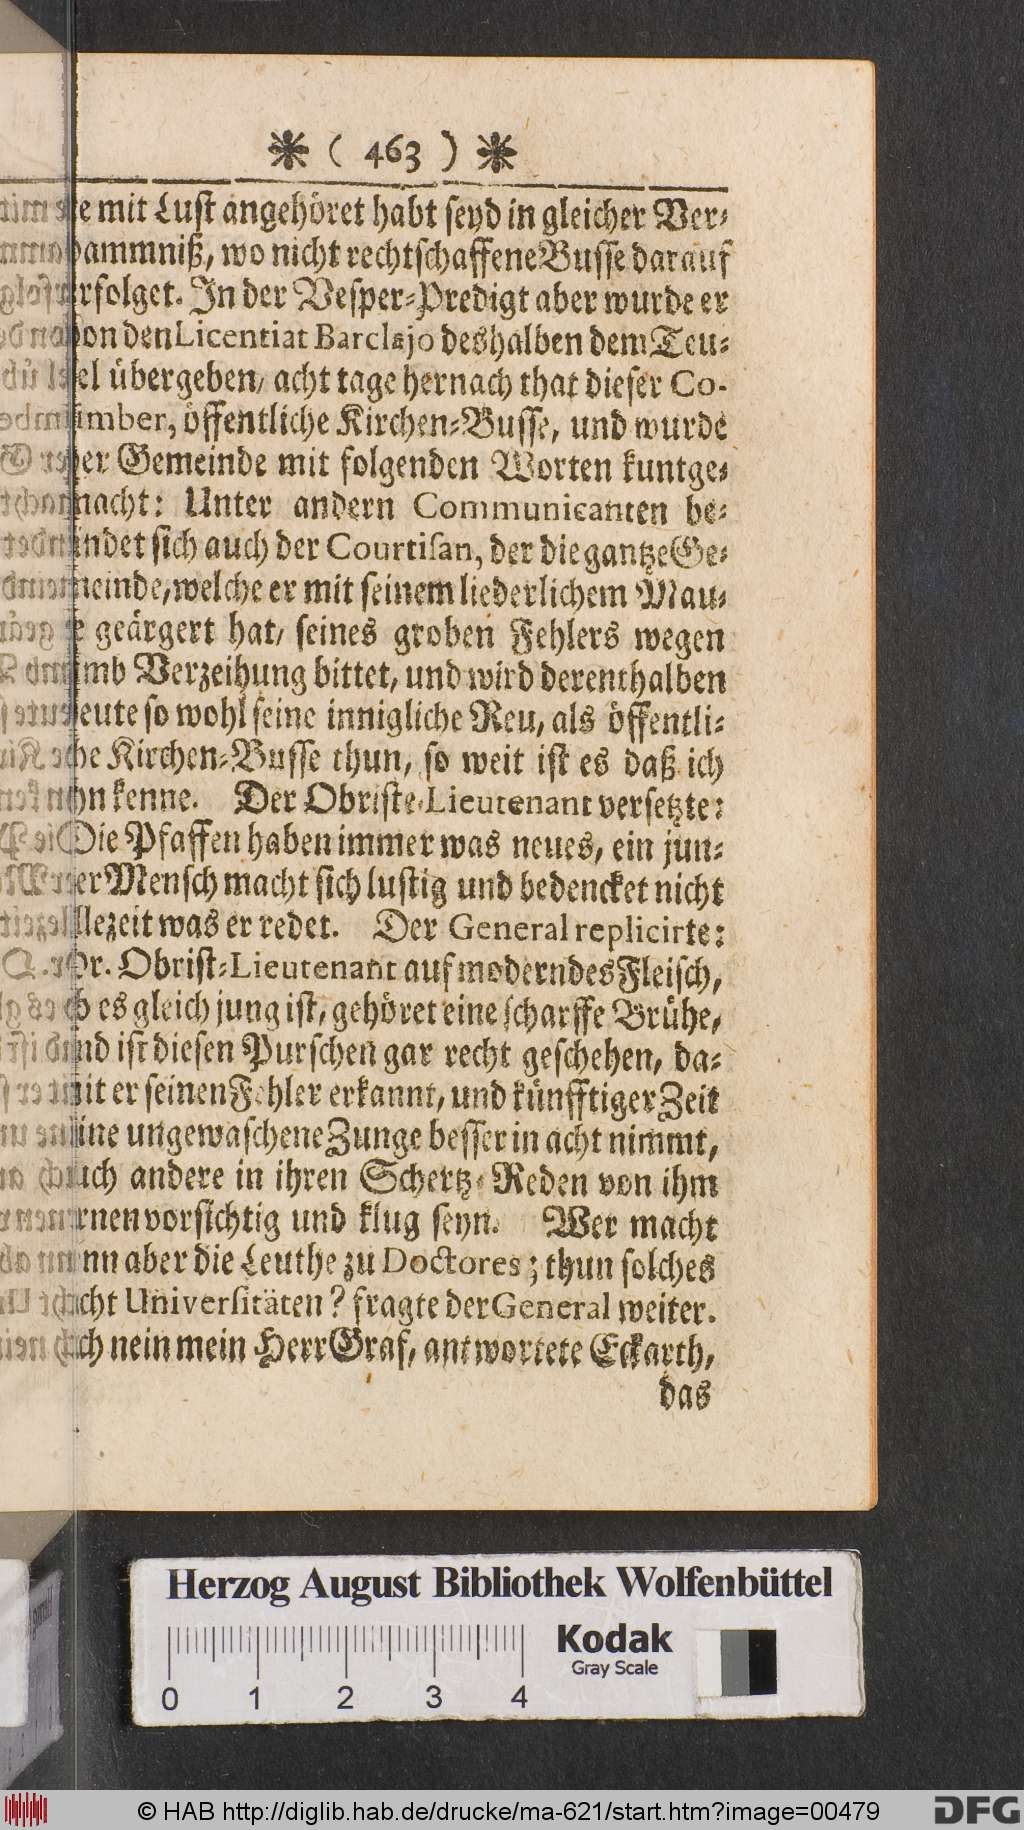 ❋ ( 463 ) ❋
e mit Lust angehöret habt seyd in gleicher Ver-
dammniß, wo nicht rechtschaffene Busse darauf
erfolget. In der Vesper-Predigt aber wurde er
von den Licentiat Barclajo deshalben dem Teu-
fel übergeben, acht tage hernach that dieser Co-
imber, öffentliche Kirchen-Busse, und wurde
der Gemeinde mit folgenden Worten kuntge-
macht: Unter andern Communicanten be-
findet sich auch der Courtisan, der die gantze Ge-
meinde, welche er mit seinem liederlichem Mau-
e geärgert hat, seines groben Fehlers wegen
umb Verzeihung bittet, und wird derenthalben
heute so wohl seine innigliche Reu, als öffentli-
che Kirchen-Busse thun, so weit ist es daß ich
ihn kenne. Der Obriste-Lieutenant versetzte:
Die Pfaffen haben immer was neues, ein jun-
ger Mensch macht sich lustig und bedencket nicht
allezeit was er redet. Der General replicirte:
Hr. Obrist-Lieutenant auf moderndes Fleisch,
ob es gleich jung ist, gehöret eine scharffe Brühe,
und ist diesen Purschen gar recht geschehen, da-
mit er seinen Fehler erkannt, und künfftiger Zeit
seine ungewaschene Zunge besser in acht nimmt,
auch andere in ihren Schertz-Reden von ihm
lernen vorsichtig und klug seyn. Wer macht
denn aber die Leuthe zu Doctores; thun solches
nicht Universitäten? fragte der General weiter.
Ach nein mein Herr Graf, antwortete Eckarth,
das
Herzog August Bibliothek Wolfenbüttel
Kodak
Gray Scale
0 1 2 3 4
© HAB http://diglib.hab.de/drucke/ma-621/start.htm?image=00479
DFG